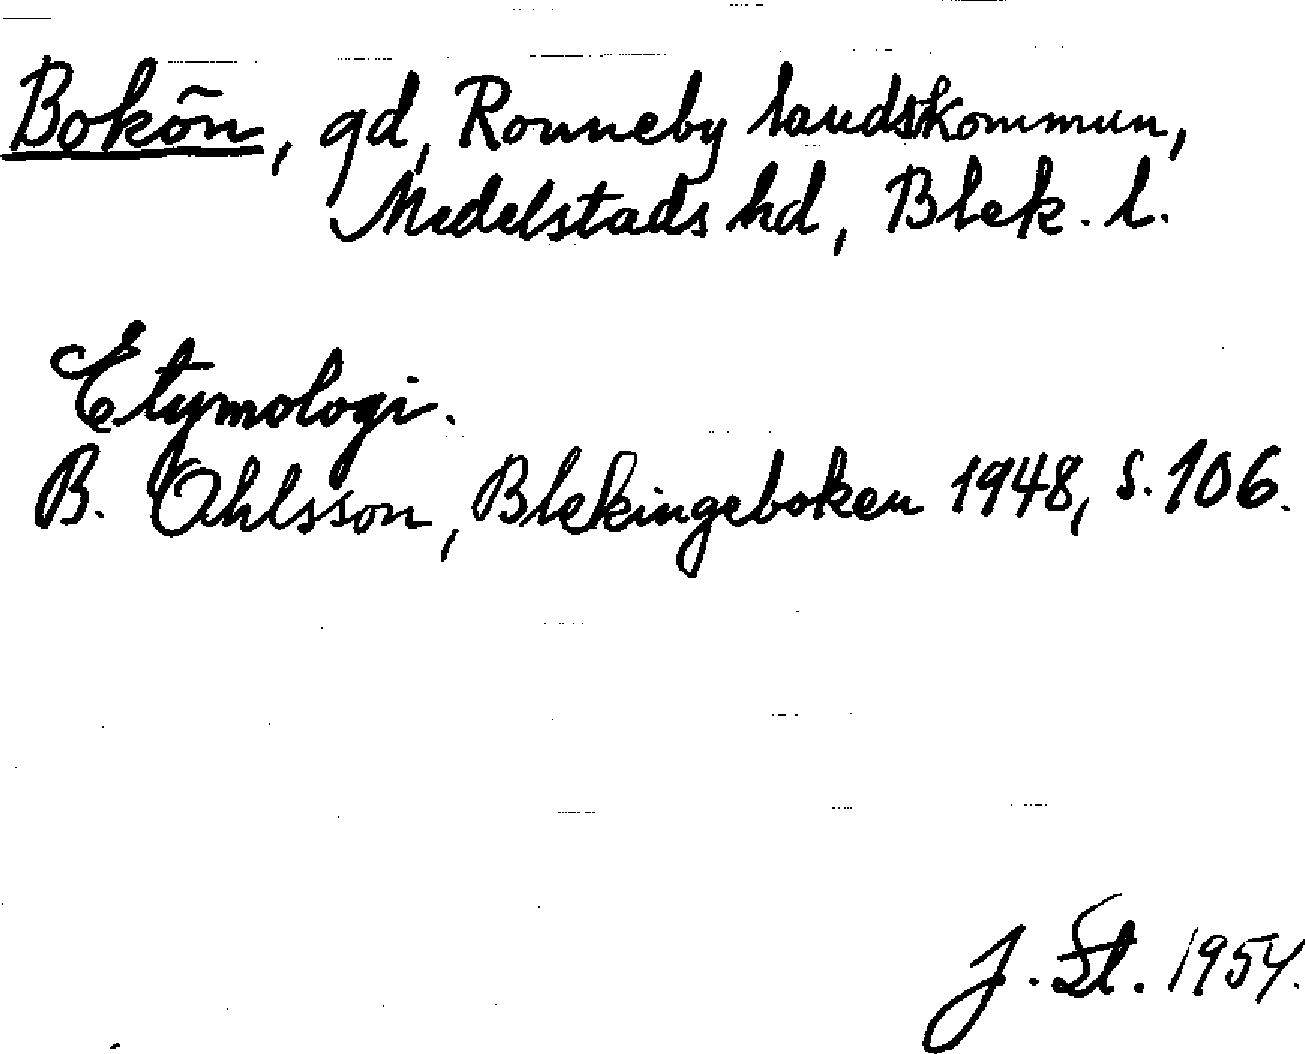 Bokön, gd, Ronneby landskommun,
Medelstads hd, Blek. l.
Etymologi.
B. Ohlsson, Blekingeboken 1948, s. 106.
J. St. 1954.